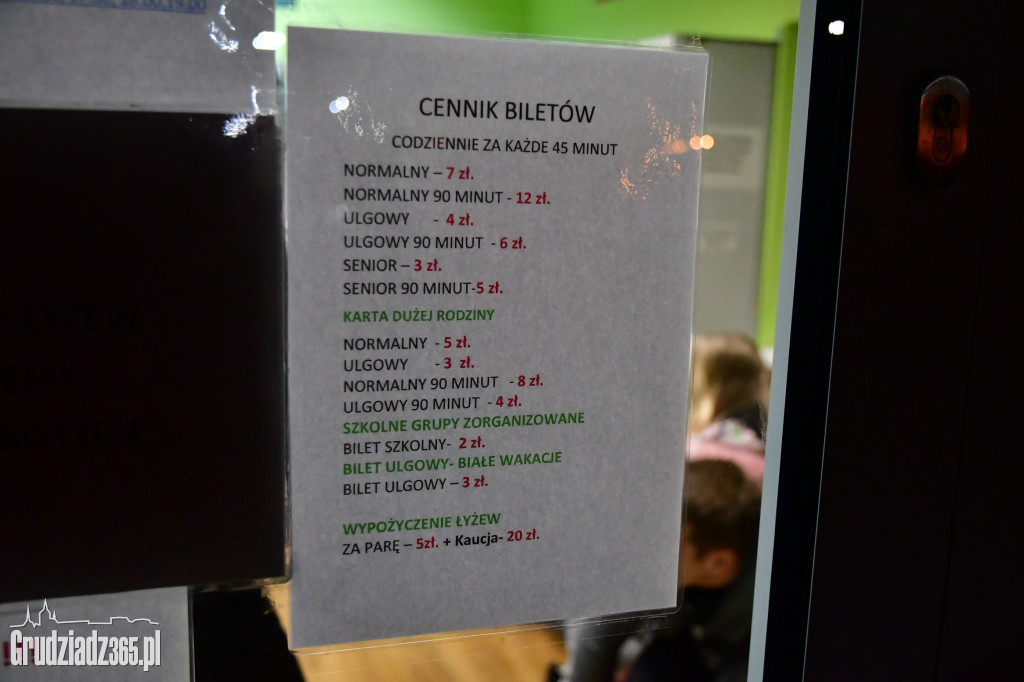 18.00,19.00
CENNIK BILETÓW
CODZIENNIE ZA KAŻDE 45 MINUT
NORMALNY – 7 zł.
NORMALNY 90 MINUT - 12 zł.
ULGOWY - 4 zł.
ULGOWY 90 MINUT - 6 zł.
SENIOR – 3 zł.
SENIOR 90 MINUT-5 zł.
KARTA DUŻEJ RODZINY
NORMALNY - 5 zł.
ULGOWY - 3 zł.
NORMALNY 90 MINUT - 8 zł.
ULGOWY 90 MINUT - 4 zł.
SZKOLNE GRUPY ZORGANIZOWANE
BILET SZKOLNY- 2 zł.
BILET ULGOWY- BIAŁE WAKACJE
BILET ULGOWY – 3 zł.
WYPOŻYCZENIE ŁYŻEW
ZA PARĘ – 5zł. + Kaucja- 20 zł.
ŁYŻEW
Grudziadz365.pl